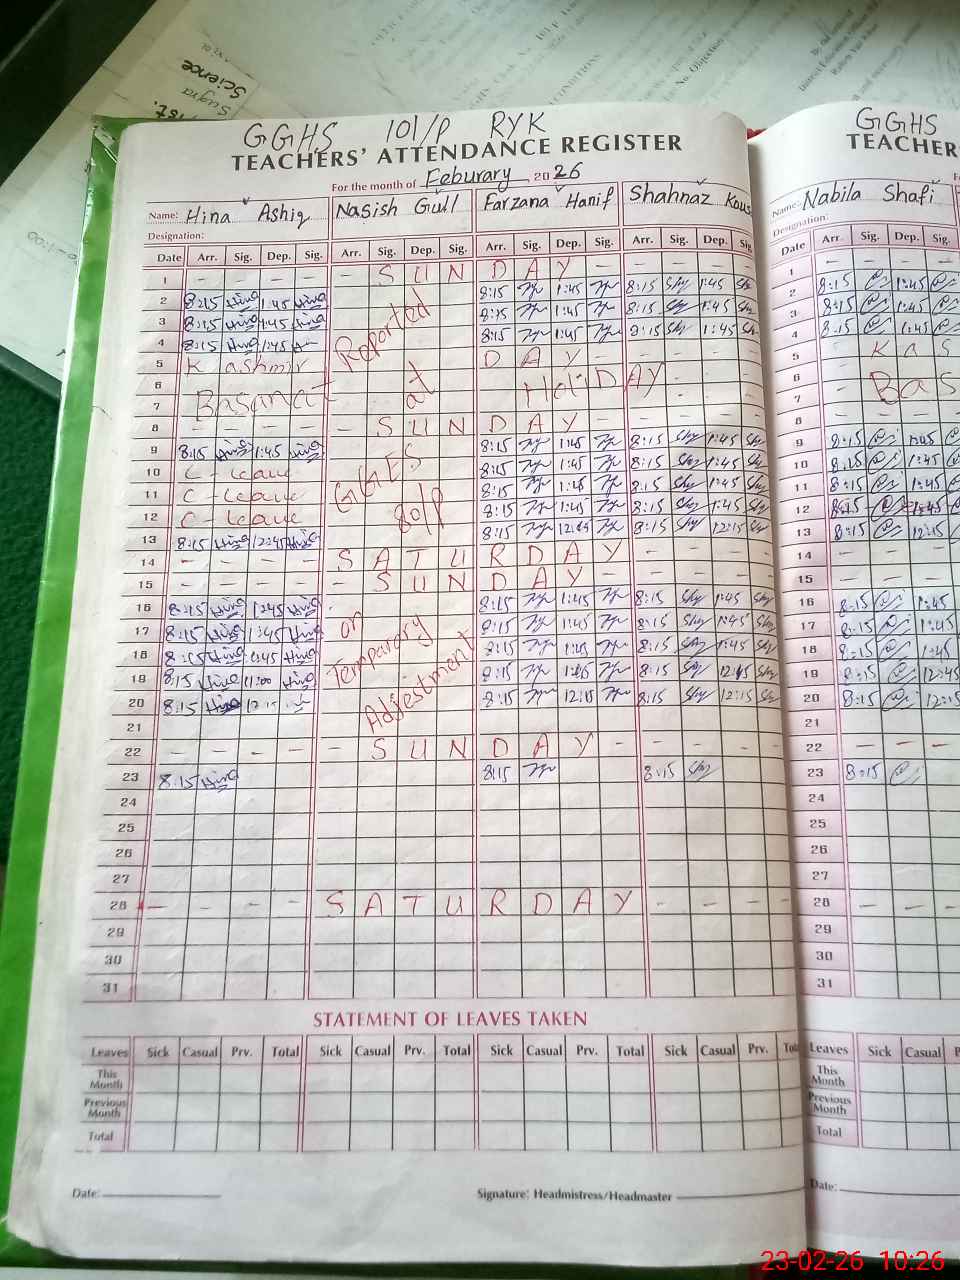 Science
Sugra
GGHS 101/P RYK
TEACHERS' ATTENDANCE REGISTER
For the month of Feburary, 2026
Name: Hina Ashiq Nagish Gull Farzana Hanif Shahnaz Kaus
Designation:
Date Arr. Sig. Dep. Sig. Arr. Sig. Dep. Sig. Arr. Sig. Dep. Sig. Arr. Sig. Dep. Sig.
1 - - - - - S U N D A Y - - - - -
2 8:15 Hina 1:45 Hina 8:15 1:45 8:15 Shy 1:45
3 8:15 Hina 1:45 Hina Reported 8:15 1:45 8:15 Shy 1:45
4 8:15 Hina 1:45 8:15 1:45 8:15 Shy 1:45
5 Kashmir D A Y - - - - -
6 at
7 Basanat Holi DAY
8 - - - - - S U N D A Y - - - - -
9 8:15 Hina 1:45 Hina 8:15 1:45 8:15 Shy 1:45 Shy
10 C-leave GGES 8:15 1:45 8:15 Shy 1:45 Shy
11 C-leave 8:15 1:45 8:15 Shy 1:45 Shy
12 C-leave 80/P 8:15 1:45 8:15 Shy 1:45 Shy
13 8:15 Hina 12:45 Hina 8:15 8:15 Shy 12:15 Shy
14 - - - - S A T U R D A Y - - - -
15 - - - - - S U N D A Y - - - - -
16 8:15 Hina 1:45 Hina 8:15 1:45 8:15 Shy 1:45 Shy
17 8:15 Hina 1:45 Hina on 8:15 1:45 8:15 Shy 1:45 Shy
18 8:15 Hina 1:45 Hina Temparary 8:15 1:45 8:15 Shy 1:45 Shy
19 8:15 Hina 11:00 Hina 8:15 8:15 Shy 12:45 Shy
20 8:15 Hina Adjestment 8:15 12:15 8:15 Shy 12:15 Shy
21
22 - - - - - S U N D A Y - - - - -
23 8:15 Hina 8:15 8:15 Shy
24
25
26
27
28 - - - - S A T U R D A Y - - - -
29
30
31
STATEMENT OF LEAVES TAKEN
Leaves Sick Casual Prv. Total Sick Casual Prv. Total Sick Casual Prv. Total Sick Casual Prv. Total
This Month
Previous Month
Total
Date:
Signature: Headmistress/Headmaster
GGHS
TEACHER
Name: Nabila Shafi
Designation:
Date Arr. Sig. Dep. Sig.
1 - - - -
2 8:15 1:45
3 8:15 1:45
4 8:15 1:45
5 K a s
6
7 Bas
8 - - - -
9 8:15 1:45
10 8:15 1:45
11 8:15 1:45
12 8:15 1:45
13 8:15 12:15
14 - - - -
15 - - - -
16 8:15 1:45
17 8:15 1:45
18 8:15 1:45
19 8:15 12:45
20 8:15 12:15
21
22 - - - -
23 8:15
24
25
26
27
28 - - - -
29
30
31
Leaves Sick Casual
This Month
Previous Month
Total
Date:
23-02-26 10:26